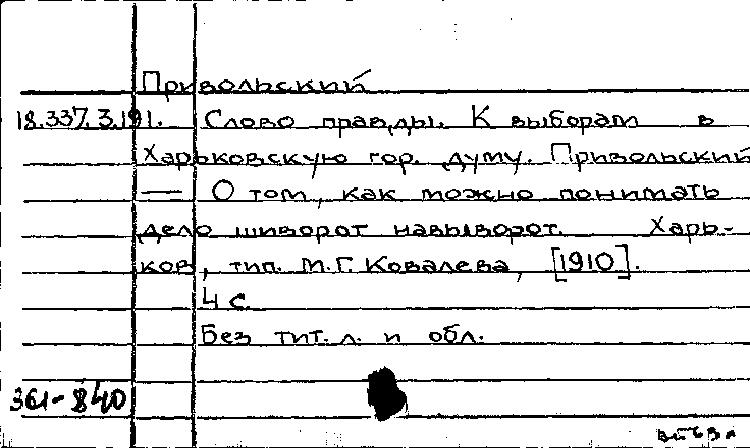 Привольский
18.337.3.191. Слово правды. К выборам в
Харьковскую гор. думу. Привольский
— О том, как можно понимать
дело шиворот навыворот. Харь-
ков, тип. М.Г. Ковалева, [1910].
4 с.
Без тит. л. и обл.
361-840